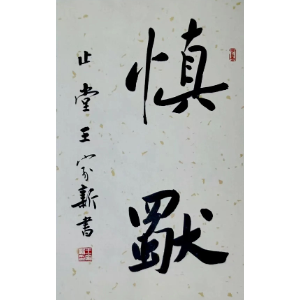 慎獨
止堂王家新書